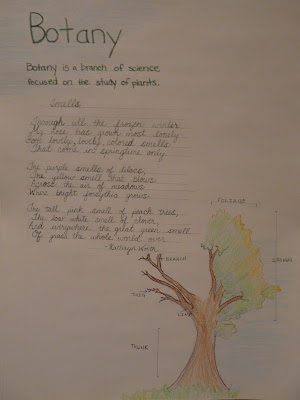 Botany
Botany is a branch of science
focused on the study of plants.
Smells
Through all the frozen winter
My nose has grown most lonely
For lovely, lovely, colored smells
That come in springtime only.
The purple smell of lilacs,
The yellow smell that blows
Across the air of meadows
Where bright forsythia grows.
The tall pink smell of peach trees,
The low white smell of clover,
And everywhere the great green smell
Of grass the whole world over.
FOLIAGE
BRANCH
TWIG
LIMB
CROWN
TRUNK